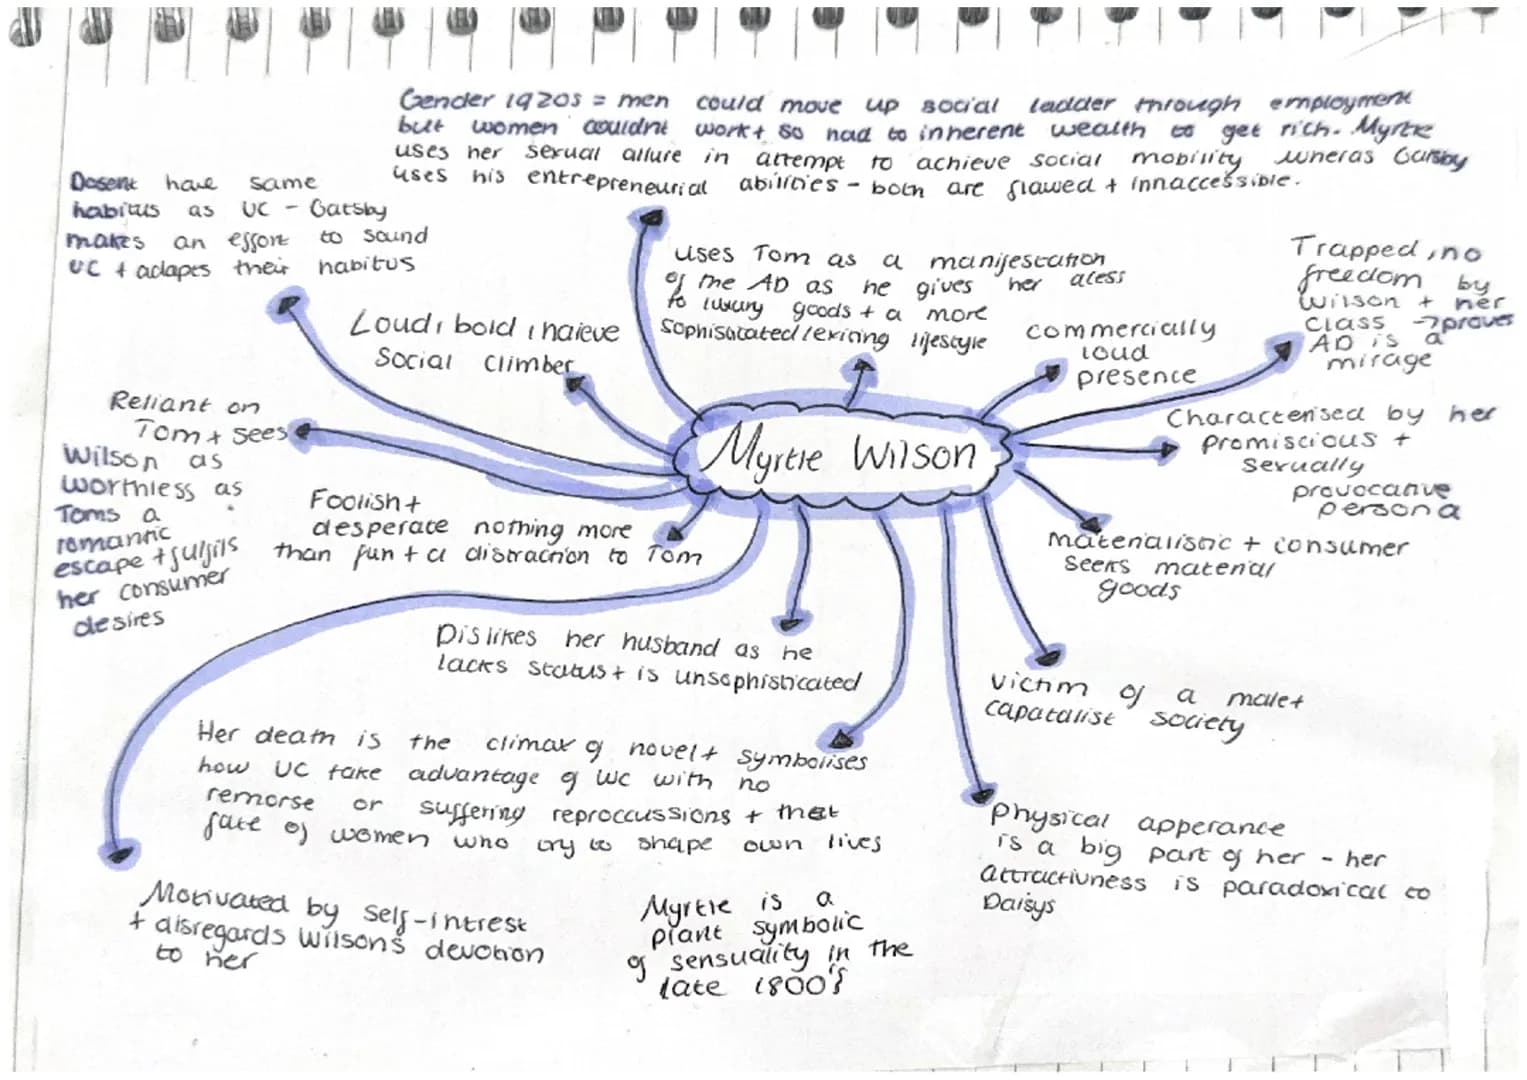 Gender 1920s = men could move up social ladder through employment
but women couldnt work + so had to inherent wealth to get rich. Myrtle
uses her sexual allure in attempt to achieve social mobility wheras Gatsby
uses his entrepreneurial abilities - both are flawed + innaccessible.
Dosent have same
habitus as UC - Gatsby
makes an effort to sound
UC + adapts their habitus
uses Tom as a manifestation
of the AD as he gives her acess
to luxury goods + a more
sophisticated/exciting lifestyle
Trapped, no
freedom by
Wilson + her
class → proves
AD is a
mirage
Loud, bold, naieve
social climber
commercially
loud
presence
Reliant on
Tom + sees
Wilson as
worthless as
Toms a
romantic
escape + fulfils
her consumer
desires
Myrtle Wilson
Characterised by her
promiscious +
sexually
provocative
persona
Foolish +
desperate nothing more
than fun + a distraction to Tom
materialistic + consumer
seeks material
goods
Dislikes her husband as he
lacks status + is unsophisticated
victim of a male +
capatalist society
Her death is the climax of novel + symbolises
how UC take advantage of WC with no
remorse or suffering reproccussions + that
fate of women who try to shape own lives
physical apperance
is a big part of her - her
attractivness is paradoxical to
Daisys
Motivated by self-intrest
+ disregards Wilson's devotion
to her
Myrtle is a
plant symbolic
of sensuality in the
late 1800's